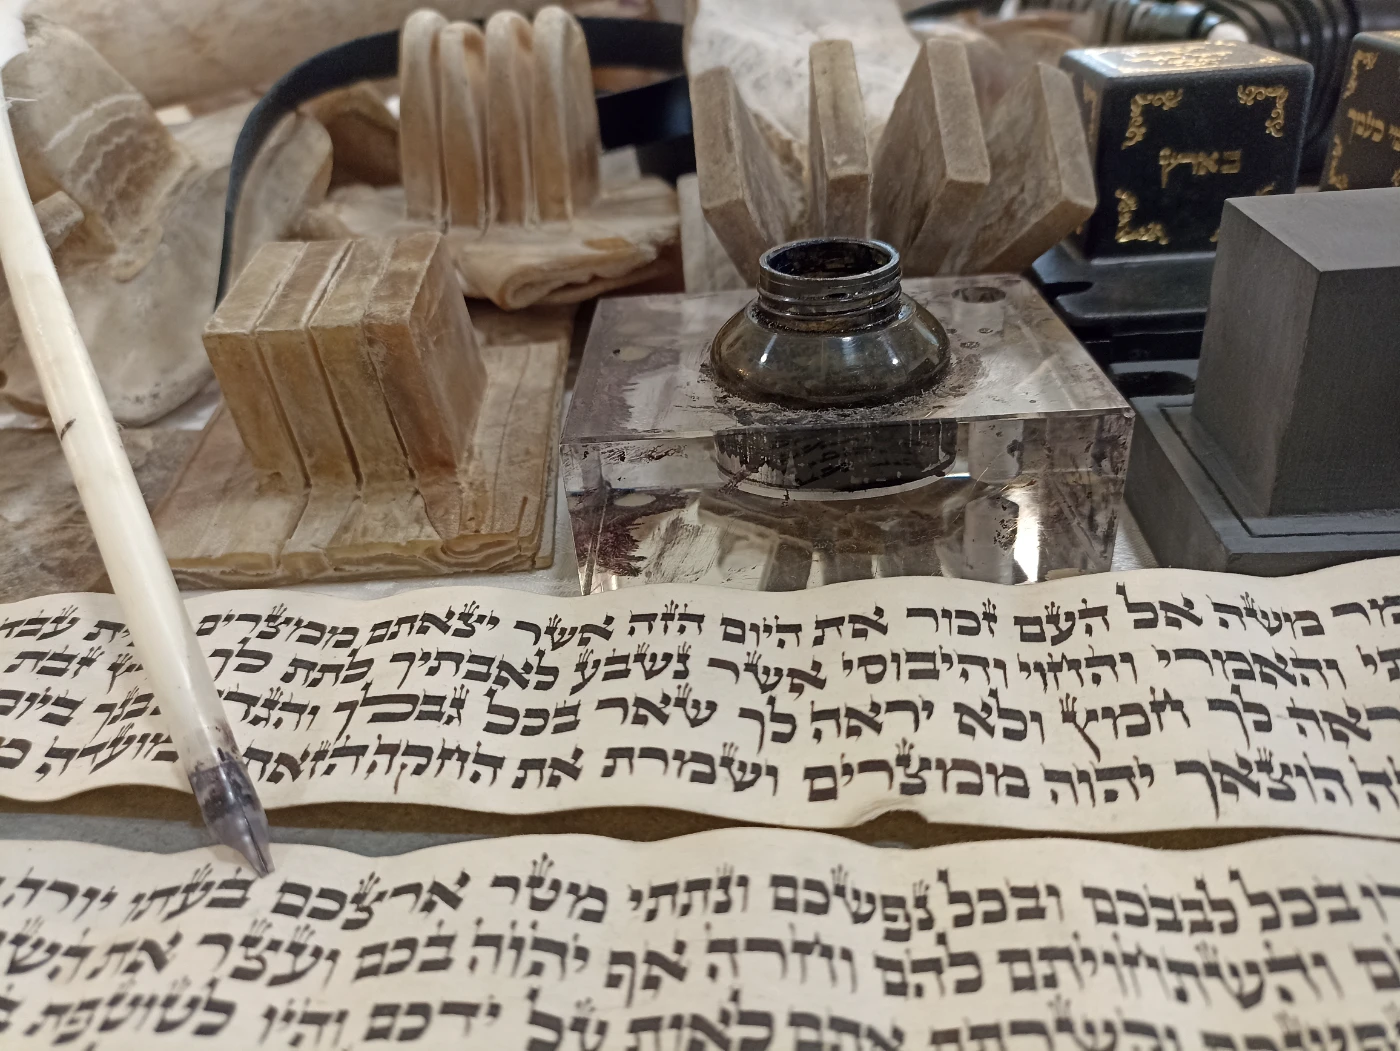 משה אל העם זכור את היום הזה אשר יצאתם ממצרים
והאמרי והחוי והיבוסי אשר נשבע לאבתיך לתת לך זבת
לך חמץ ולא יראה לך שאר בכל גבלך ביום
הוצאך יהוה ממצרים ושמרת את החקה הזאת
ובכל לבבכם ובכל נפשכם ונתתי מטר ארצכם בעתו יורה
והשתחויתם להם וחרה אף יהוה בכם ועצר את
וקשרתם אתם לאות על ידכם והיו לטוטפת